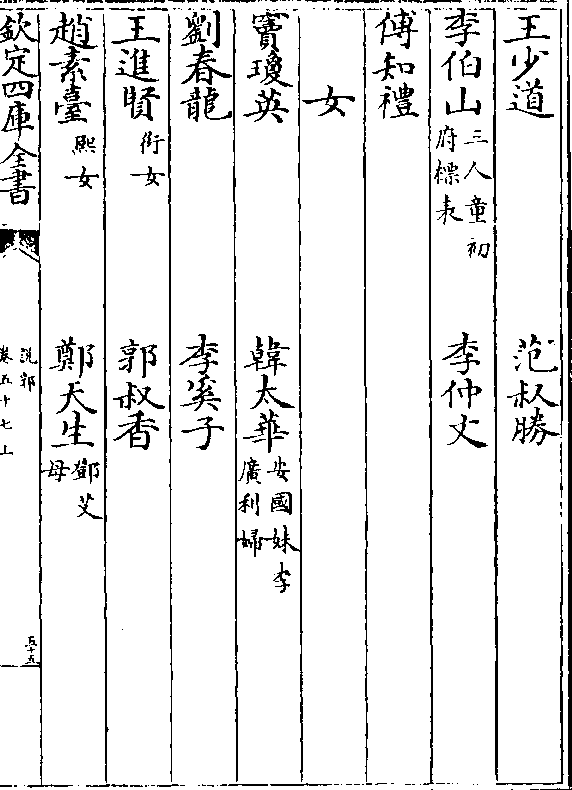 王少道　范叔勝
李伯山三人童初府標表　李仲文
傅知禮
女
竇瓊英　韓太華安國妹李廣利婦
劉春龍　李奚子
王進賢衍女　郭叔香
趙素臺熙女　鄭天生鄧艾母
欽定四庫全書　說郛卷五十七上　五十五